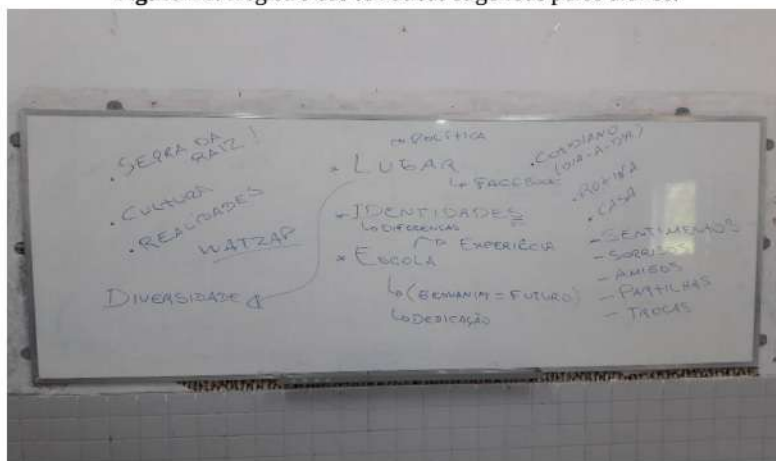 . SERRA DA
RAIZ!
. CULTURA
. REALIDADES
WATZAP
DIVERSIDADE
POLÍTICA
* LUGAR
↳ FACEBOOK
* IDENTIDADES
↳ DIFERENÇAS
↱ EXPERIÊCIA
* ESCOLA
↳ ( = FUTURO)
↳ DEDICAÇÃO
. COTIDIANO
(DIA-A-DIA)
. ROTINA
. CASA
- SENTIMENTOS
- SORRISOS
- AMIGOS
- PARTILHAS
- TROCAS